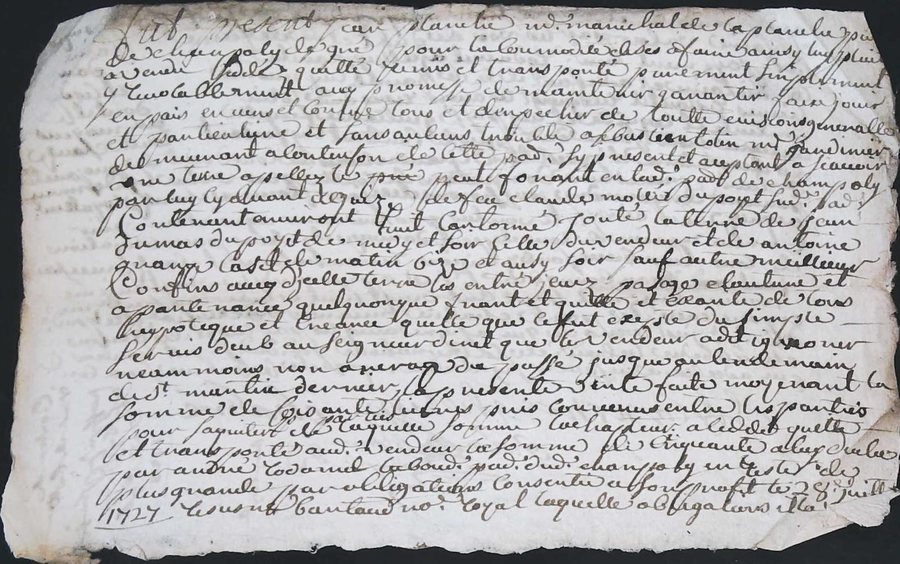 fut present jean planche md marechal de la planche
de champoly lequel pour la comodité de ses affaires
a vendu cedé quitté remis et transporté purement simplement
et irrevocablement avec promesse de maintenir garantir faire jouir
en paix envers et contre tous et dempecher de toutte evictions generalle
et particuliere et sans aucuns trouble a
demeurant cette pad. sy present et aceptant a scavoir
une terre apellez le petit fon en lad. pade de champoly
par luy de feu claude du poyt sud. pad.
Contenant environt huit Cartonné Joute la terre de jean
Dumas du poyt de midy et soir Celle du vendeur et de antoine
de matin bize et aussy soir sauf autre meilleur
Confins avec d'icelle terre ses entré yeuz pasage coutume et
apartenances quelquonque franc et quitte et exante de tous
hypoteque et creance quelle que ce fut exepté du simple
servis deub au seigneur que le vendeur a dit ignorer
neammoins non arerage du passé jusque au lendemain
de st martin dernier, la presente vente faite moyenant la
somme de soisante livres prix convenus entre les parties
pour laquelle somme lachapteur a cedde quitte
et transporté aud. vendeur la somme de cinquante a luy dechu
par andré labour. pad. dud. champoly en reste de
plus grande par obligations Consentie a son profit le 28e
1727 resus md no. royal laquelle obligations